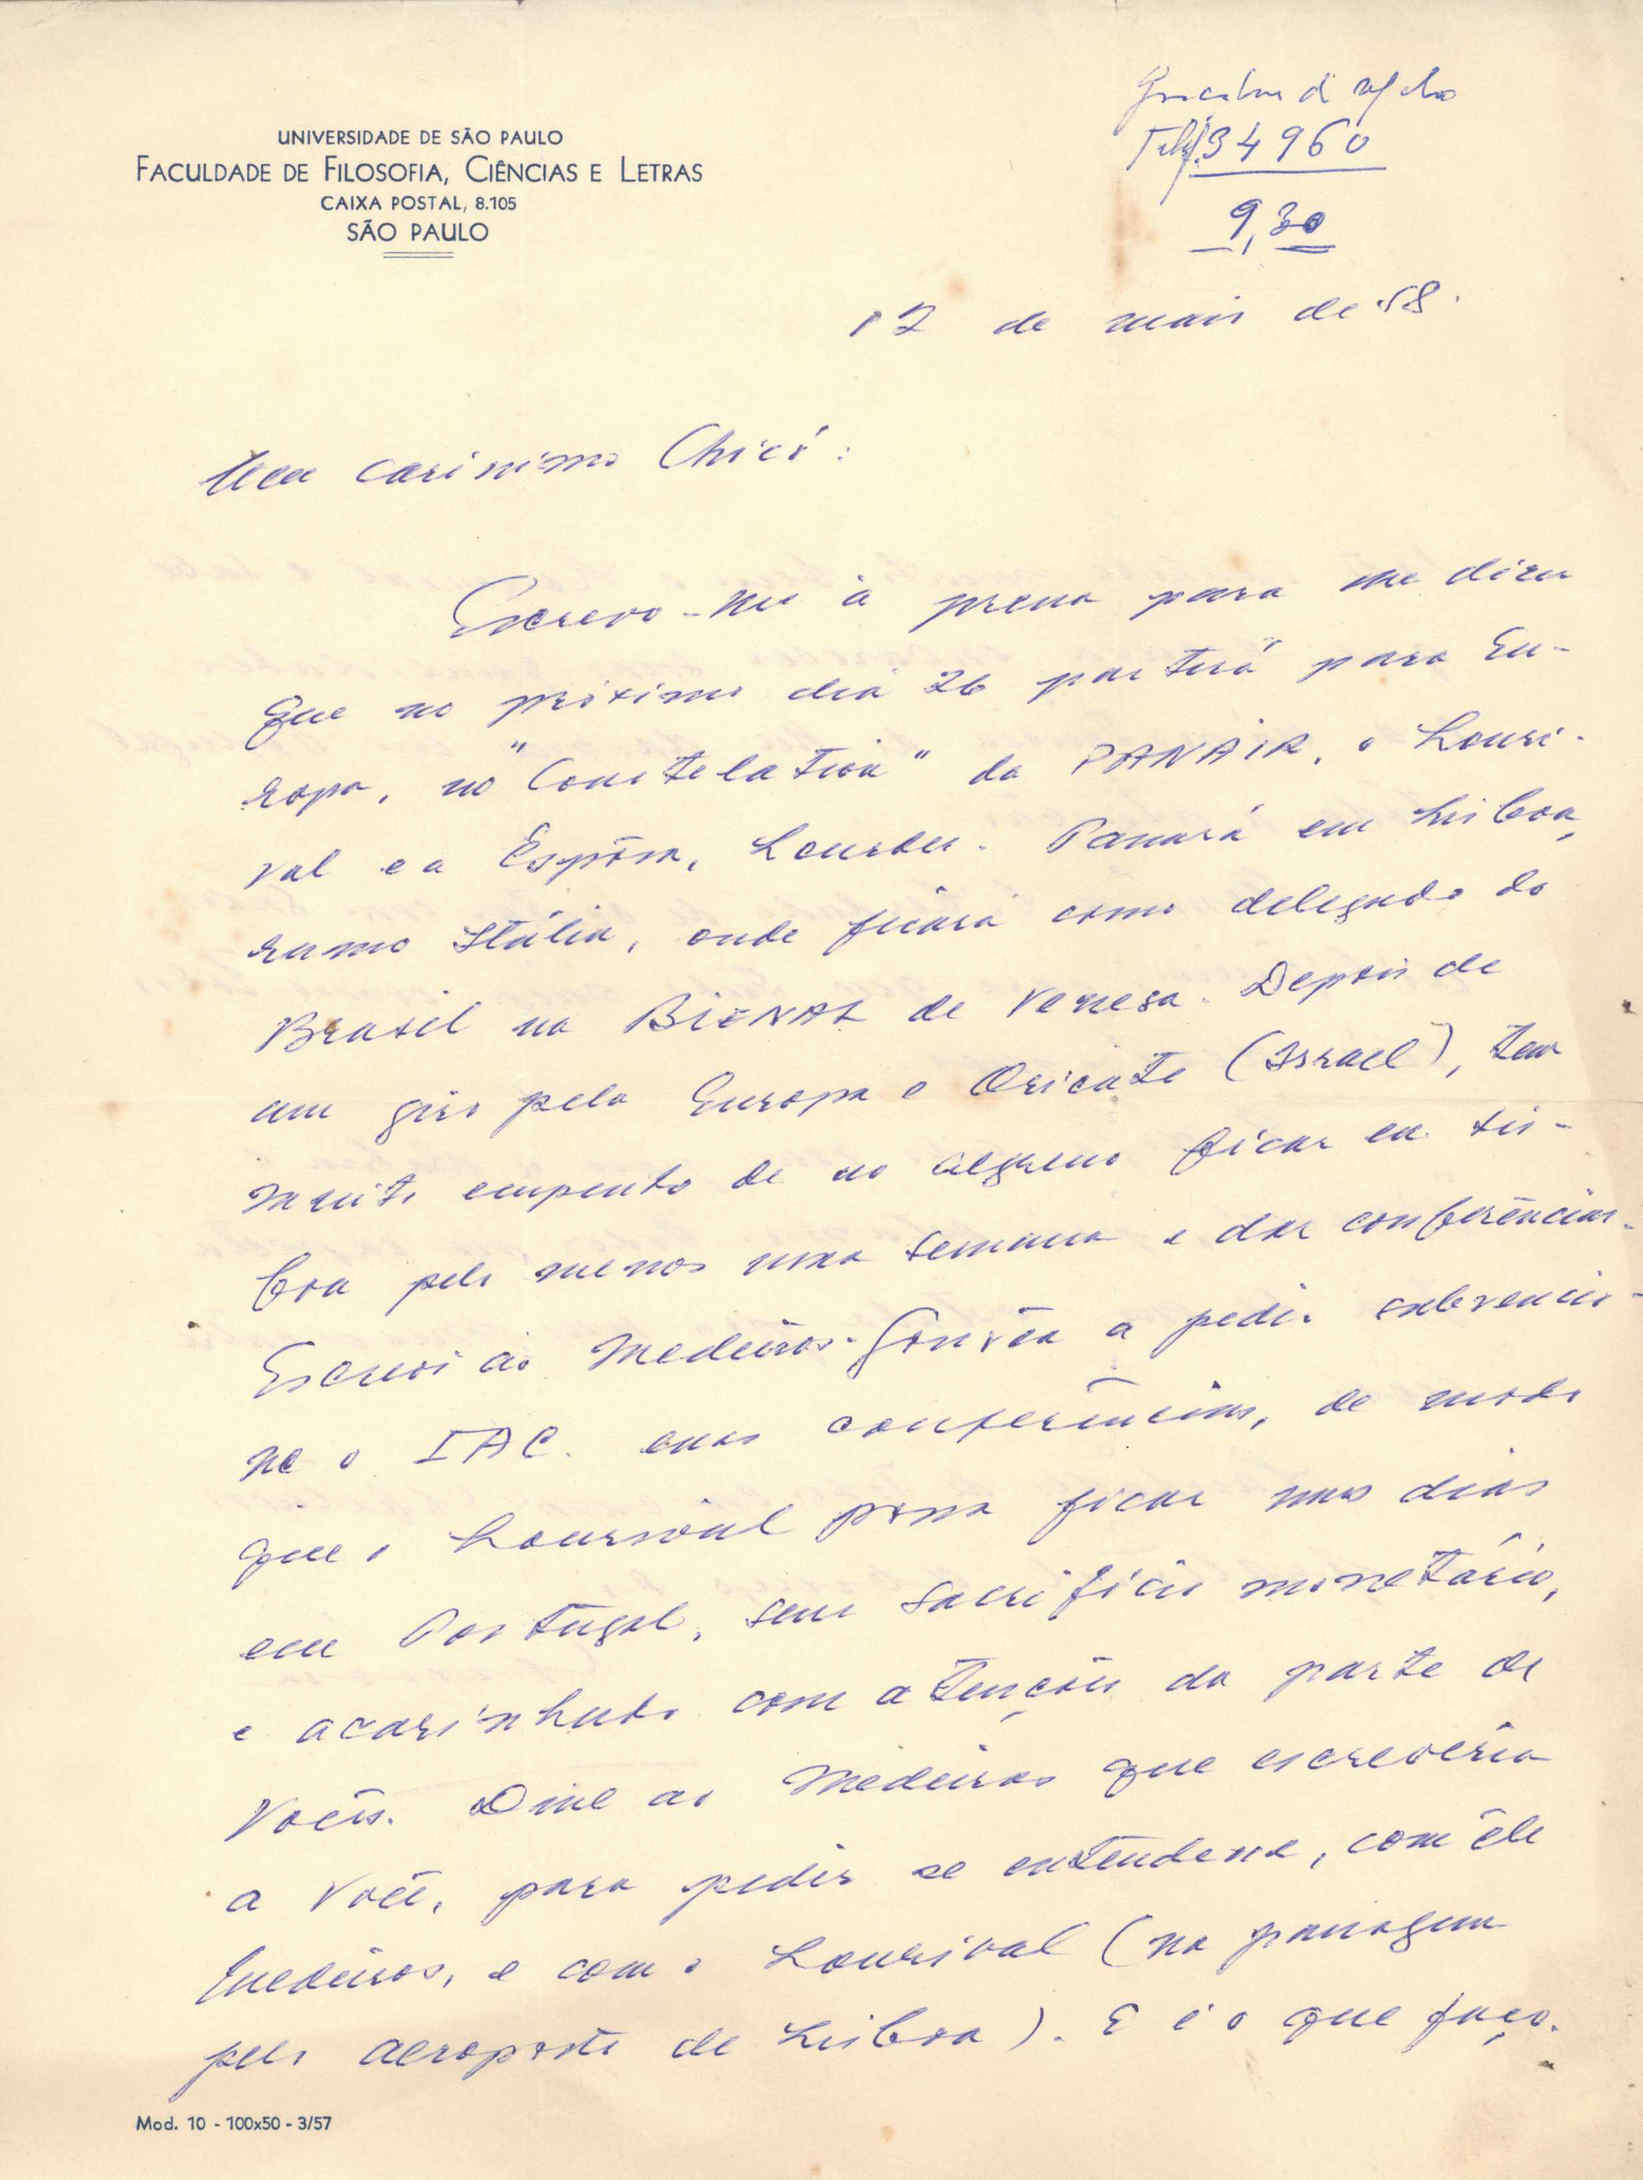 UNIVERSIDADE DE SÃO PAULO
FACULDADE DE FILOSOFIA, CIÊNCIAS E LETRAS
CAIXA POSTAL, 8.105
SÃO PAULO
Telf. 34960
9,30
12 de maio de 58.
Meu caríssimo Chicó:
Escrevo-lhe à pressa para lhe dizer
que no próximo dia 26 partirá para Eu-
ropa, no "Constelation" da PANAIR, o Louri-
val e a Espôsa, Lourdes. Passará em Lisboa,
rumo Itália, onde ficará como delegado do
Brasil na BIENAL de Veneza. Depois de
um giro pela Europa e Oriente (Israel), tem
muito empenho de no regresso ficar em Lis-
boa pelo menos uma semana e dar conferências.
Escrevi ao Medeiros-Gouvêa a pedir subvencio-
ne o IAC. essas conferências, de modo
que o Lourival possa ficar uns dias
em Portugal, sem sacrifício monetário,
e acarinhado com atenções da parte de
Vocês. Disse ao Medeiros que escreveria
a Você, para pedir se entendesse, com êle
Medeiros, e com o Lourival (na passagem
pelo aeroporto de Lisboa). E é o que faço.
Mod. 10 - 100x50 - 3/57